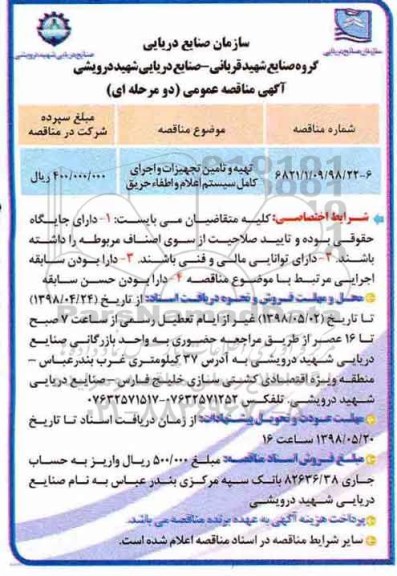 سازمان صنایع دریایی
گروه صنایع شهید قربانی-صنایع دریایی شهید درویشی
آگهی مناقصه عمومی (دو مرحله ای)
سازمان صنایع دریایی
صنایع دریایی شهید درویشی
شماره مناقصه
موضوع مناقصه
مبلغ سپرده
شرکت در مناقصه
۶۸۲۱/۱/۰۹/۹۸/۲۲-۶
تهیه و تامین تجهیزات و اجرای
کامل سیستم اعلام و اطفاء حریق
۴۰۰/۰۰۰/۰۰۰ ریال
شرایط اختصاصی: کلیه متقاضیان می بایست: ۱- دارای جایگاه
حقوقی بوده و تایید صلاحیت از سوی اصناف مربوطه را داشته
باشند. ۲- دارای توانایی مالی و فنی باشند. ۳- دارا بودن سابقه
اجرایی مرتبط با موضوع مناقصه ۴- دارا بودن حسن سابقه
محل و مهلت فروش و نحوه دریافت اسناد: از تاریخ (۱۳۹۸/۰۴/۲۴)
تا تاریخ (۱۳۹۸/۰۵/۰۲) غیر از ایام تعطیل رسمی از ساعت ۷ صبح
تا ۱۶ عصر از طریق مراجعه حضوری به واحد بازرگانی صنایع
دریایی شهید درویشی به آدرس ۳۷ کیلومتری غرب بندرعباس -
منطقه ویژه اقتصادی کشتی سازی خلیج فارس - صنایع دریایی
شهید درویشی. تلفکس ۰۷۶۳۲۵۷۱۲۵۲-۰۷۶۳۲۵۷۱۵۱۷
مهلت عودت و تحویل پیشنهادات: از زمان دریافت اسناد تا تاریخ
۱۳۹۸/۰۵/۲۰ ساعت ۱۶
مبلغ فروش اسناد مناقصه: مبلغ ۵۰۰/۰۰۰ ریال واریز به حساب
جاری ۸۲۶۳۶/۳۸ بانک سپه مرکزی بندر عباس به نام صنایع
دریایی شهید درویشی
پرداخت هزینه آگهی به عهده برنده مناقصه می باشد.
سایر شرایط مناقصه در اسناد مناقصه اعلام شده است.